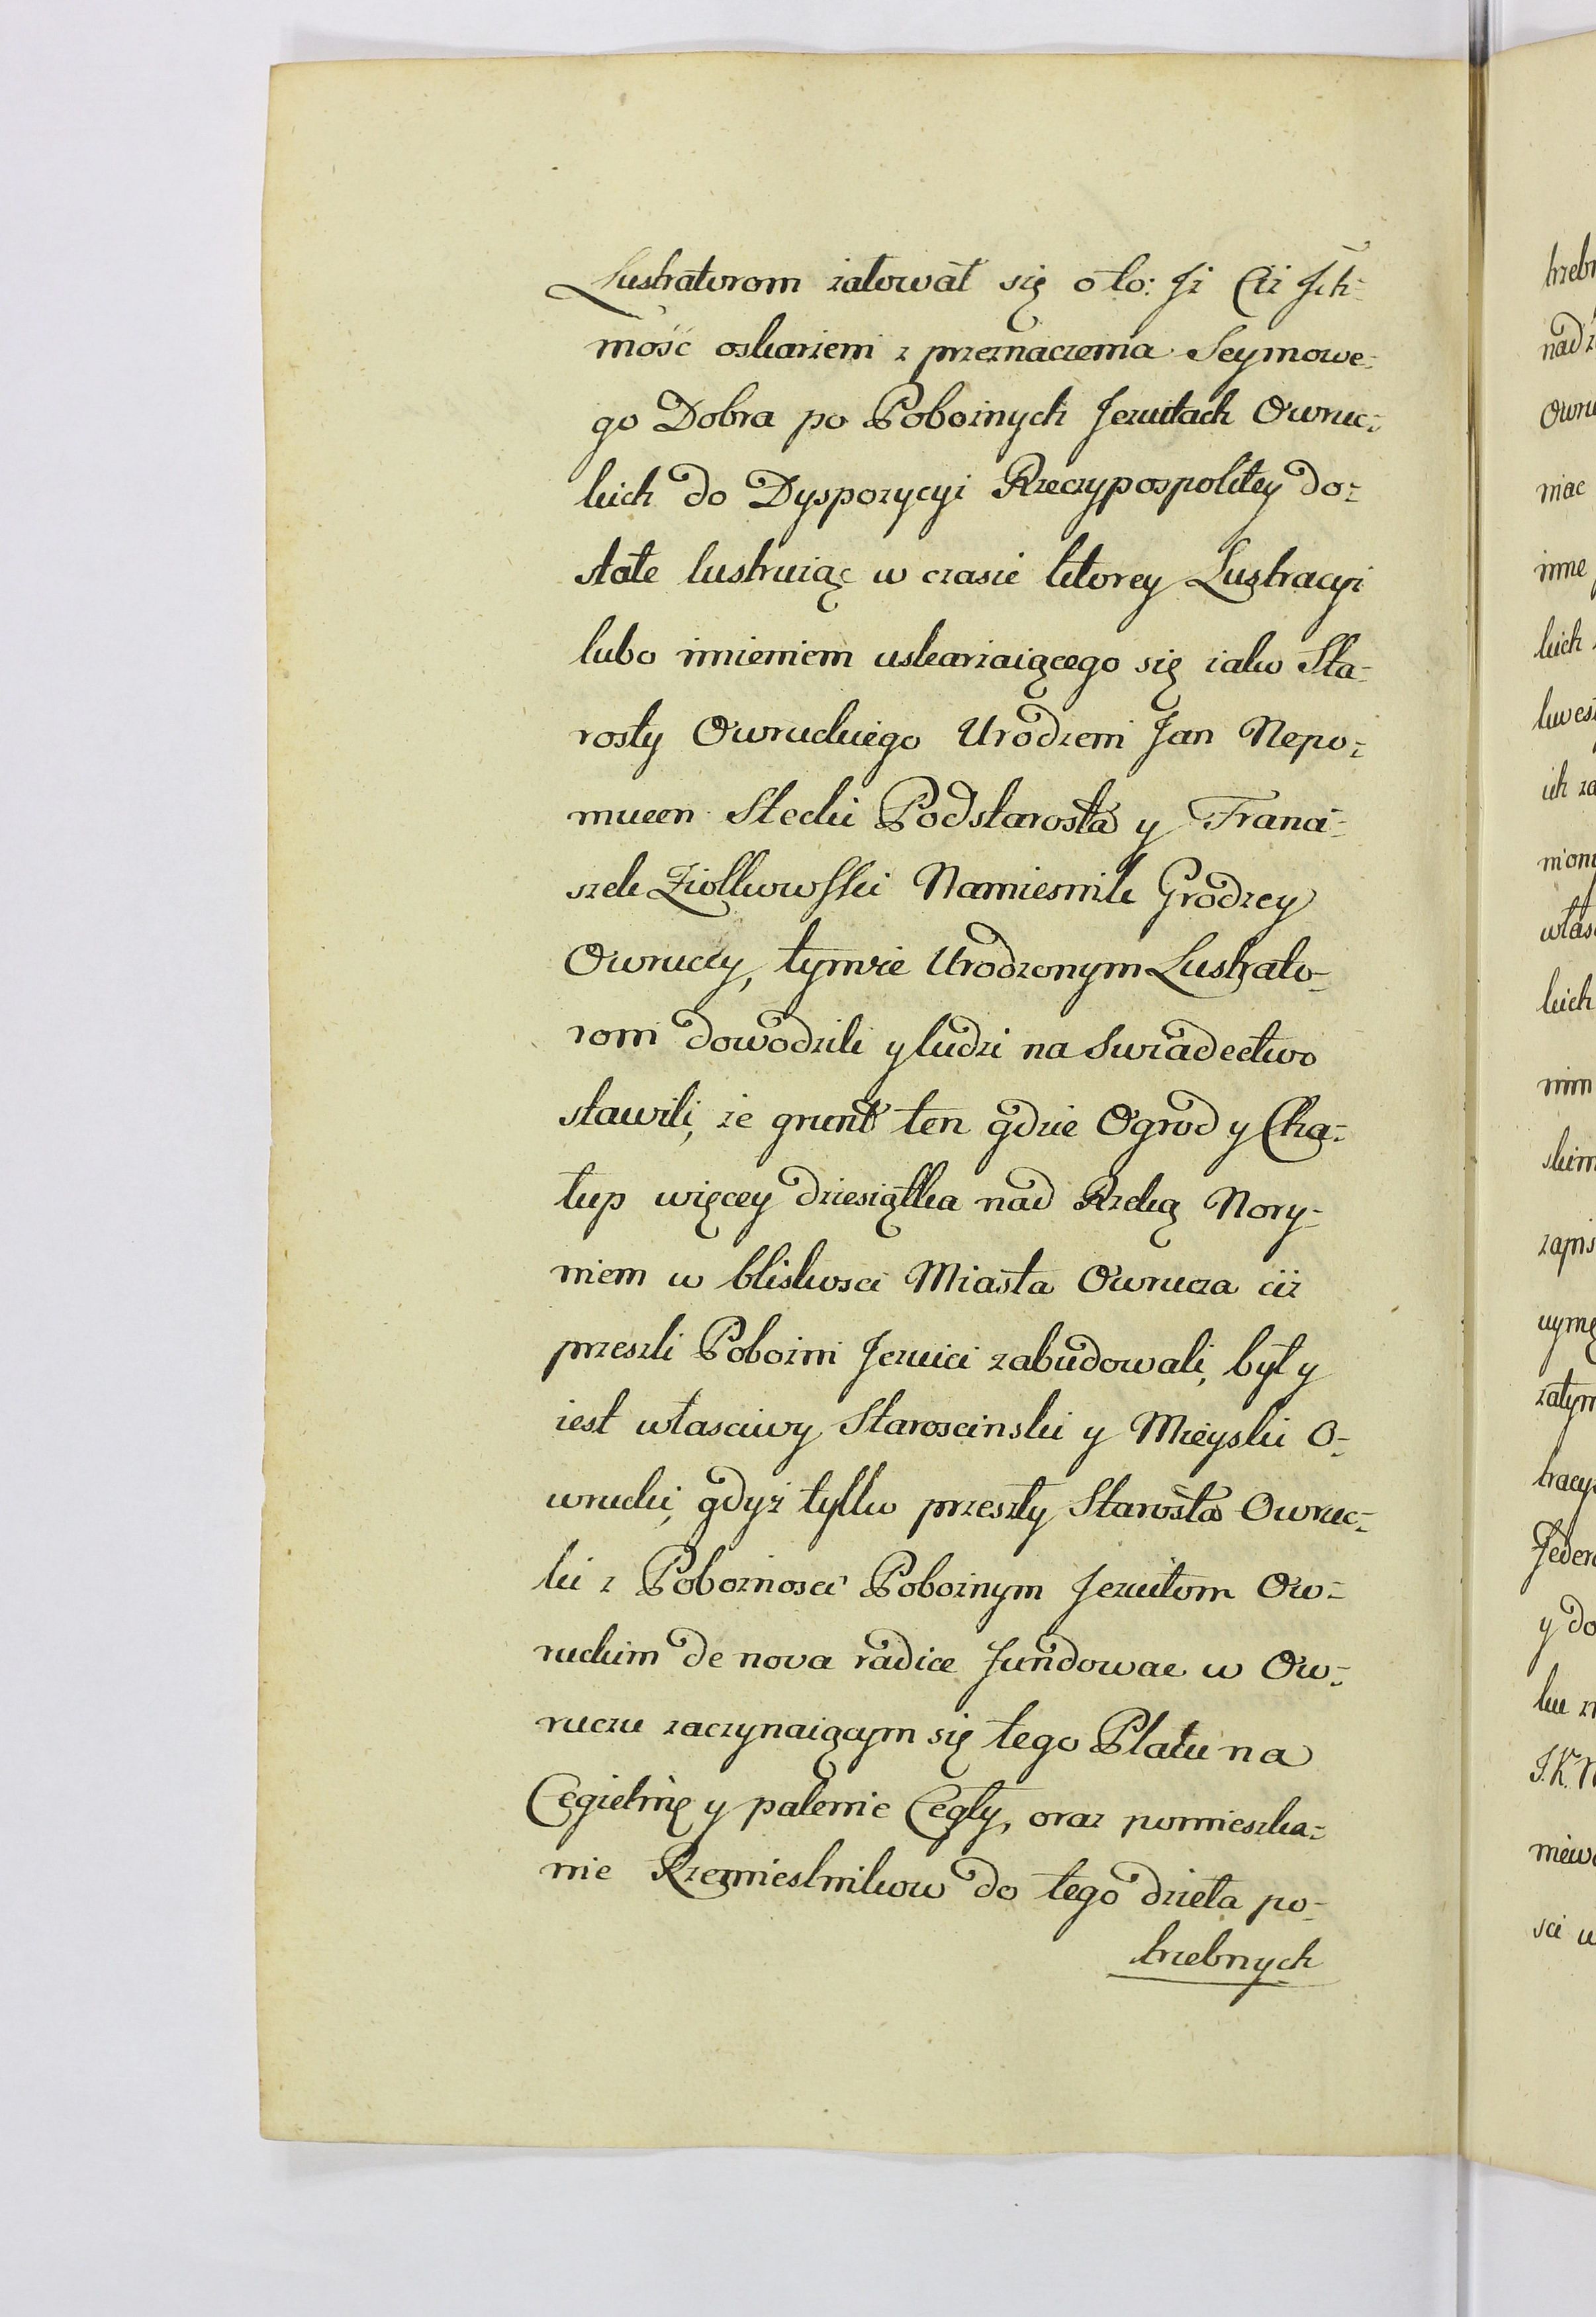 Lustratorom żałował się o to: Jż Ciż Jch-
mość oskarżeni z przeznaczenia Seymowe-
go Dobra po Pobożnych Jezuitach Owruc-
kich do Dyspozycyi Rzeczypospolitey do-
stałe lustruiąc w czasie ktorey Lustracyi
lubo imieniem uskarżaiącego się iako Sta-
rosty Owruckiego Urodzeni Jan Nepo-
mucen Stecki Podstarosta y Franci-
szek Ziołkowski Namiesnik Grodzcy
Owruccy, tymże Urodzonym Lustrato-
rom dowodzili y ludzi na swiadectwo
stawili, że grunt ten gdzie Ogrod y Cha-
łup więcey dziesiątka nad Rzeką Nory-
niem w bliskosci Miasta Owrucza ciż
przeszli Pobożni Jezuici zabudowali, był y
iest własciwy Staroscinski y Mieyski O-
wrucki, gdyż tylko przeszły Starosta Owruc-
ki z Pobożnosci Pobożnym Jezuitom Ow-
ruckim de nova radice fundowac w Ow-
ruczu zaczynaiącym się tego Platu na
Cegielnię y palenie Cegły, oraz pomieszka-
nie Rzemieslnikow do tego dzieła po-
trzebnych
trzebn
nad
Owru
niac
inne
kich
własc
kich
nim
skim
zapis
zatym
tracyi
Jeden
y do
J. K. M
sci w